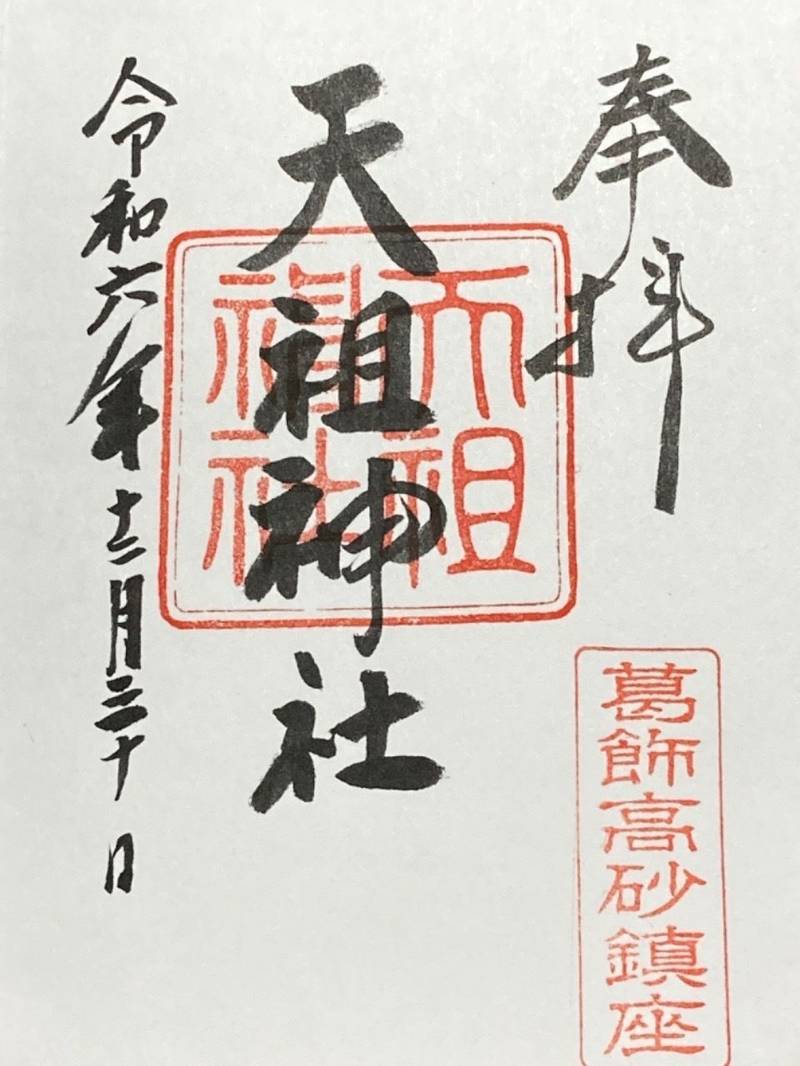 奉拝
天祖神社
天祖
神社
令和六年十二月三十日
葛飾高砂鎮座